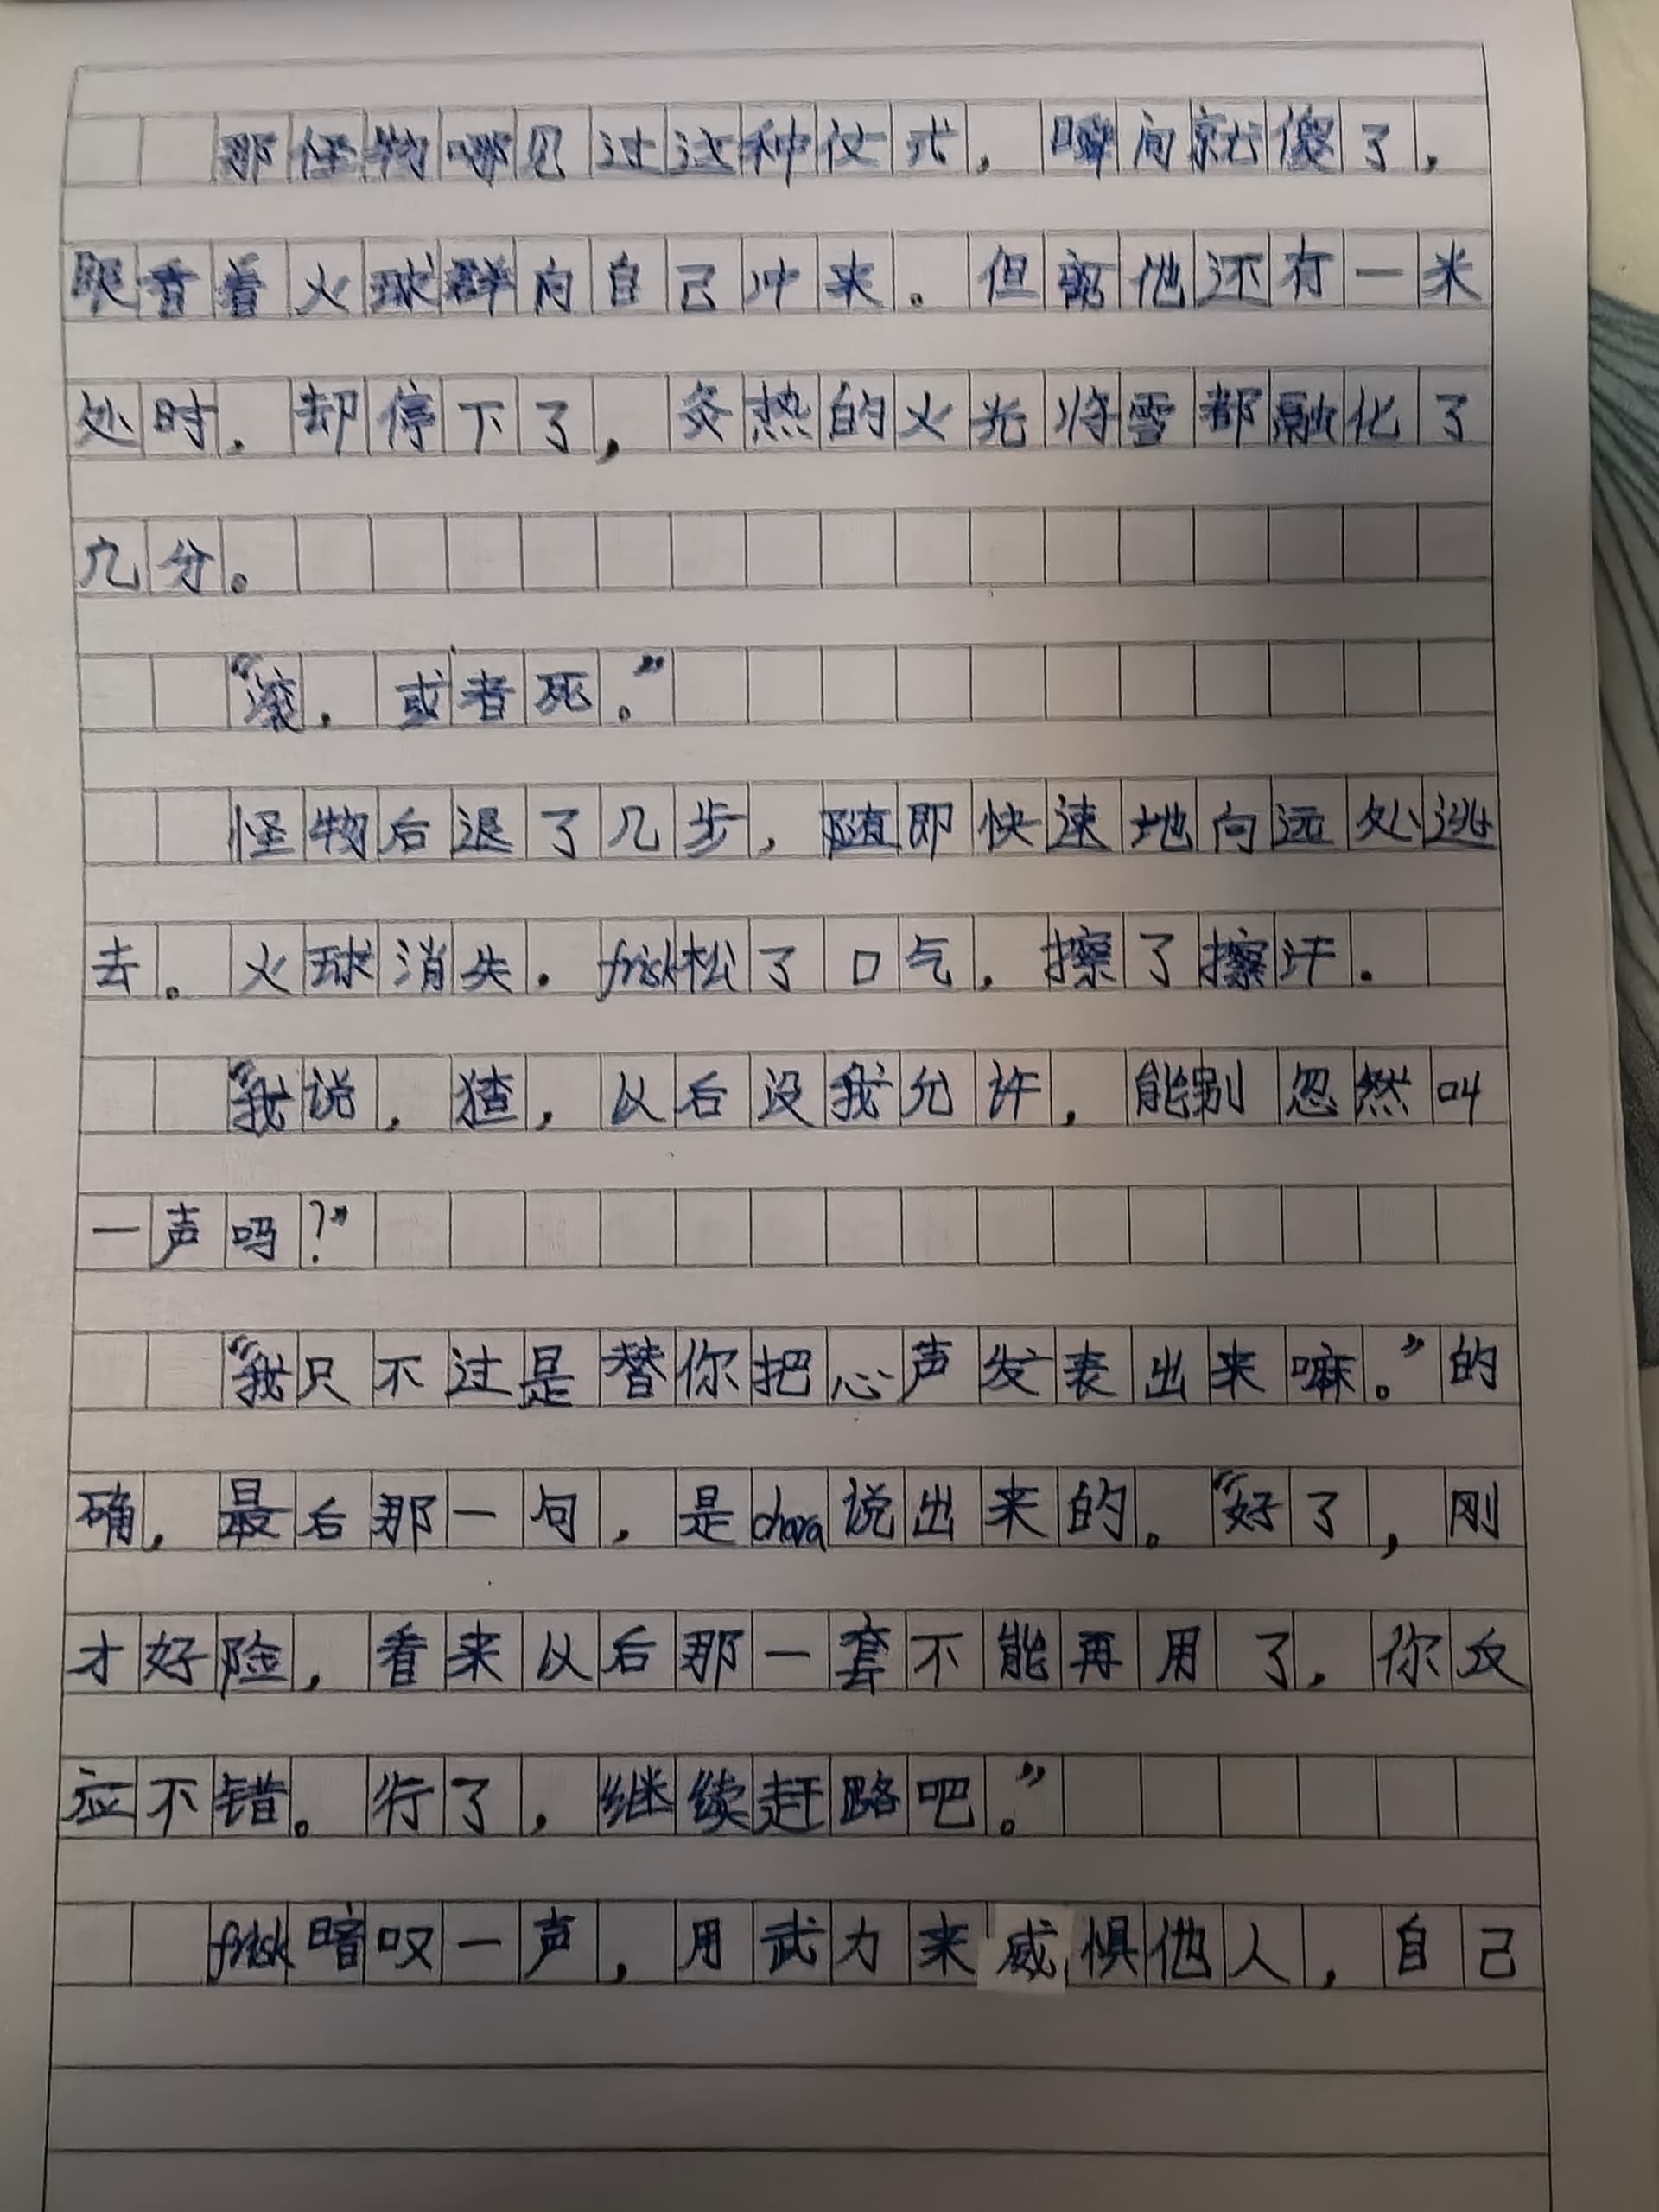 那怪物哪见过这种仗式，瞬间就傻了，
眼看着火球群向自己冲来。但离他还有一米
处时，却停下了，炙热的火光将雪都融化了
几分。
“滚，或者死。”
怪物后退了几步，随即快速地向远处逃
去。火球消失．frisk松了口气，擦了擦汗．
“我说，猹，以后没我允许，能别忽然叫
一声吗？”
“我只不过是替你把心声发表出来嘛。”的
确，最后那一句，是chara说出来的。“好了，刚
才好险，看来以后那一套不能再用了，你反
应不错。行了，继续赶路吧。”
frisk暗叹一声，用武力来威惧他人，自己